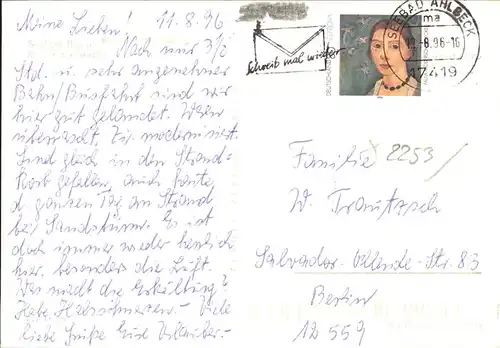 Meine Lieben! 11.8.96
Nach nur 3½
Std. u. sehr angenehmer
Bahn/Busfahrt sind wir
hier gut gelandet. Waren
überrascht, Zi. modernisiert.
Sind gleich in den Strand-
Korb gefallen, auch heute
d. ganzen Tag am Strand
bei Sandsturm. Es ist
doch immer wieder herrlich
hier, besonders die Luft.
Was macht die Erkältung?
Habe Halsschmerzen. - Viele
liebe Grüße Eure
Schreib mal wieder
SEEBAD AHLBECK
ma
12.-8.96-16
17419
Familie 2253/
W. Trautzsch
Salvador-Allende-Str. 83
Berlin
12559